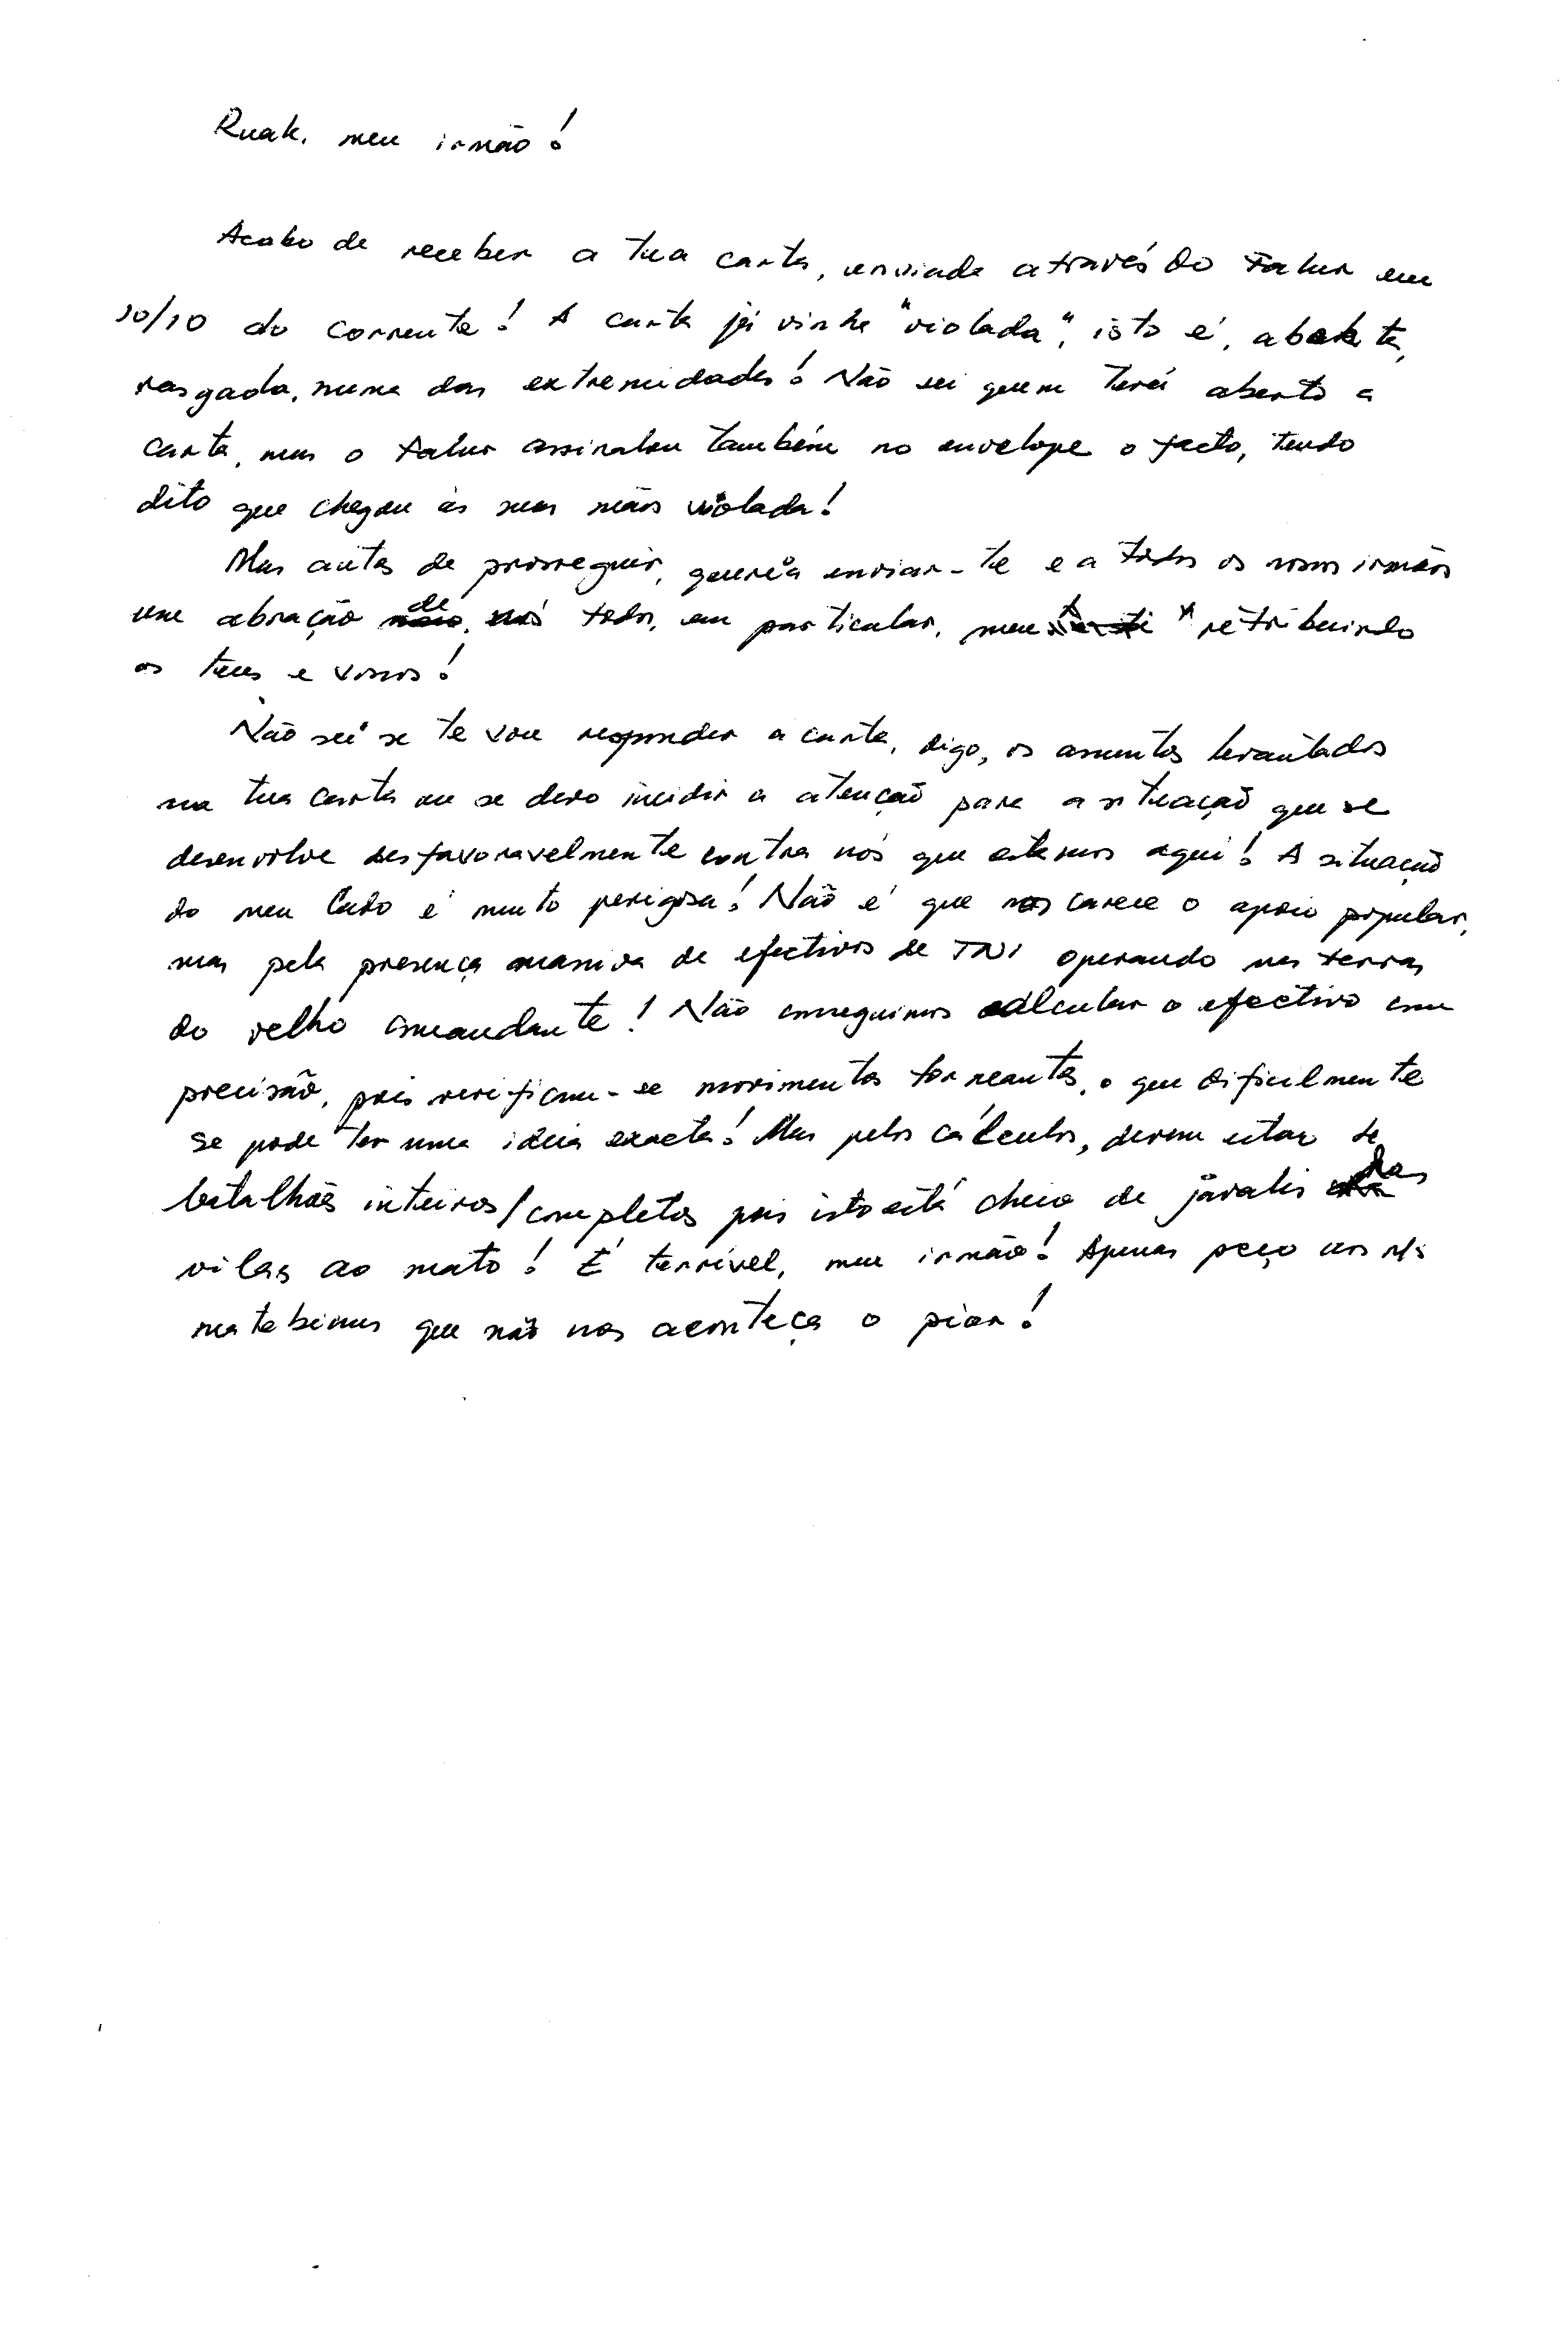 Ruak, meu irmão!
Acabo de receber a tua carta, enviada através do Falur em
10/10 do corrente! A carta já vinha "violada", isto é, aberta,
rasgada, numa das extremidades! Não sei quem terá aberto a
carta, mas o Falur assinalou também no envelope o facto, tendo
dito que chegou às suas mãos violada!
Mas antes de prosseguir, queria enviar-te e a todos os nossos irmãos
um abração de todos, em particular, meu retribuindo
os teus e vossos!
Não sei se te vou responder a carta, digo, os assuntos levantados
na tua carta ou se devo incidir a atenção para a situação que se
desenvolve desfavoravelmente contra nós que estamos aqui! A situação
do meu lado é muito perigosa! Não é que nos carece o apoio popular,
mas pela presença massiva de efectivos de TNI operando nas terras
do velho comandante! Não conseguimos calcular o efectivo com
precisão, pois verificam-se movimentos torneantes, o que dificilmente
se pode ter uma ideia exacta! Mas pelos cálculos, devem estar se
batalhões inteiros/completos pois isto está cheio de javalis das
vilas ao mato! É terrível, meu irmão! Apenas peço aos n/s
matebians que não nos aconteça o pior!